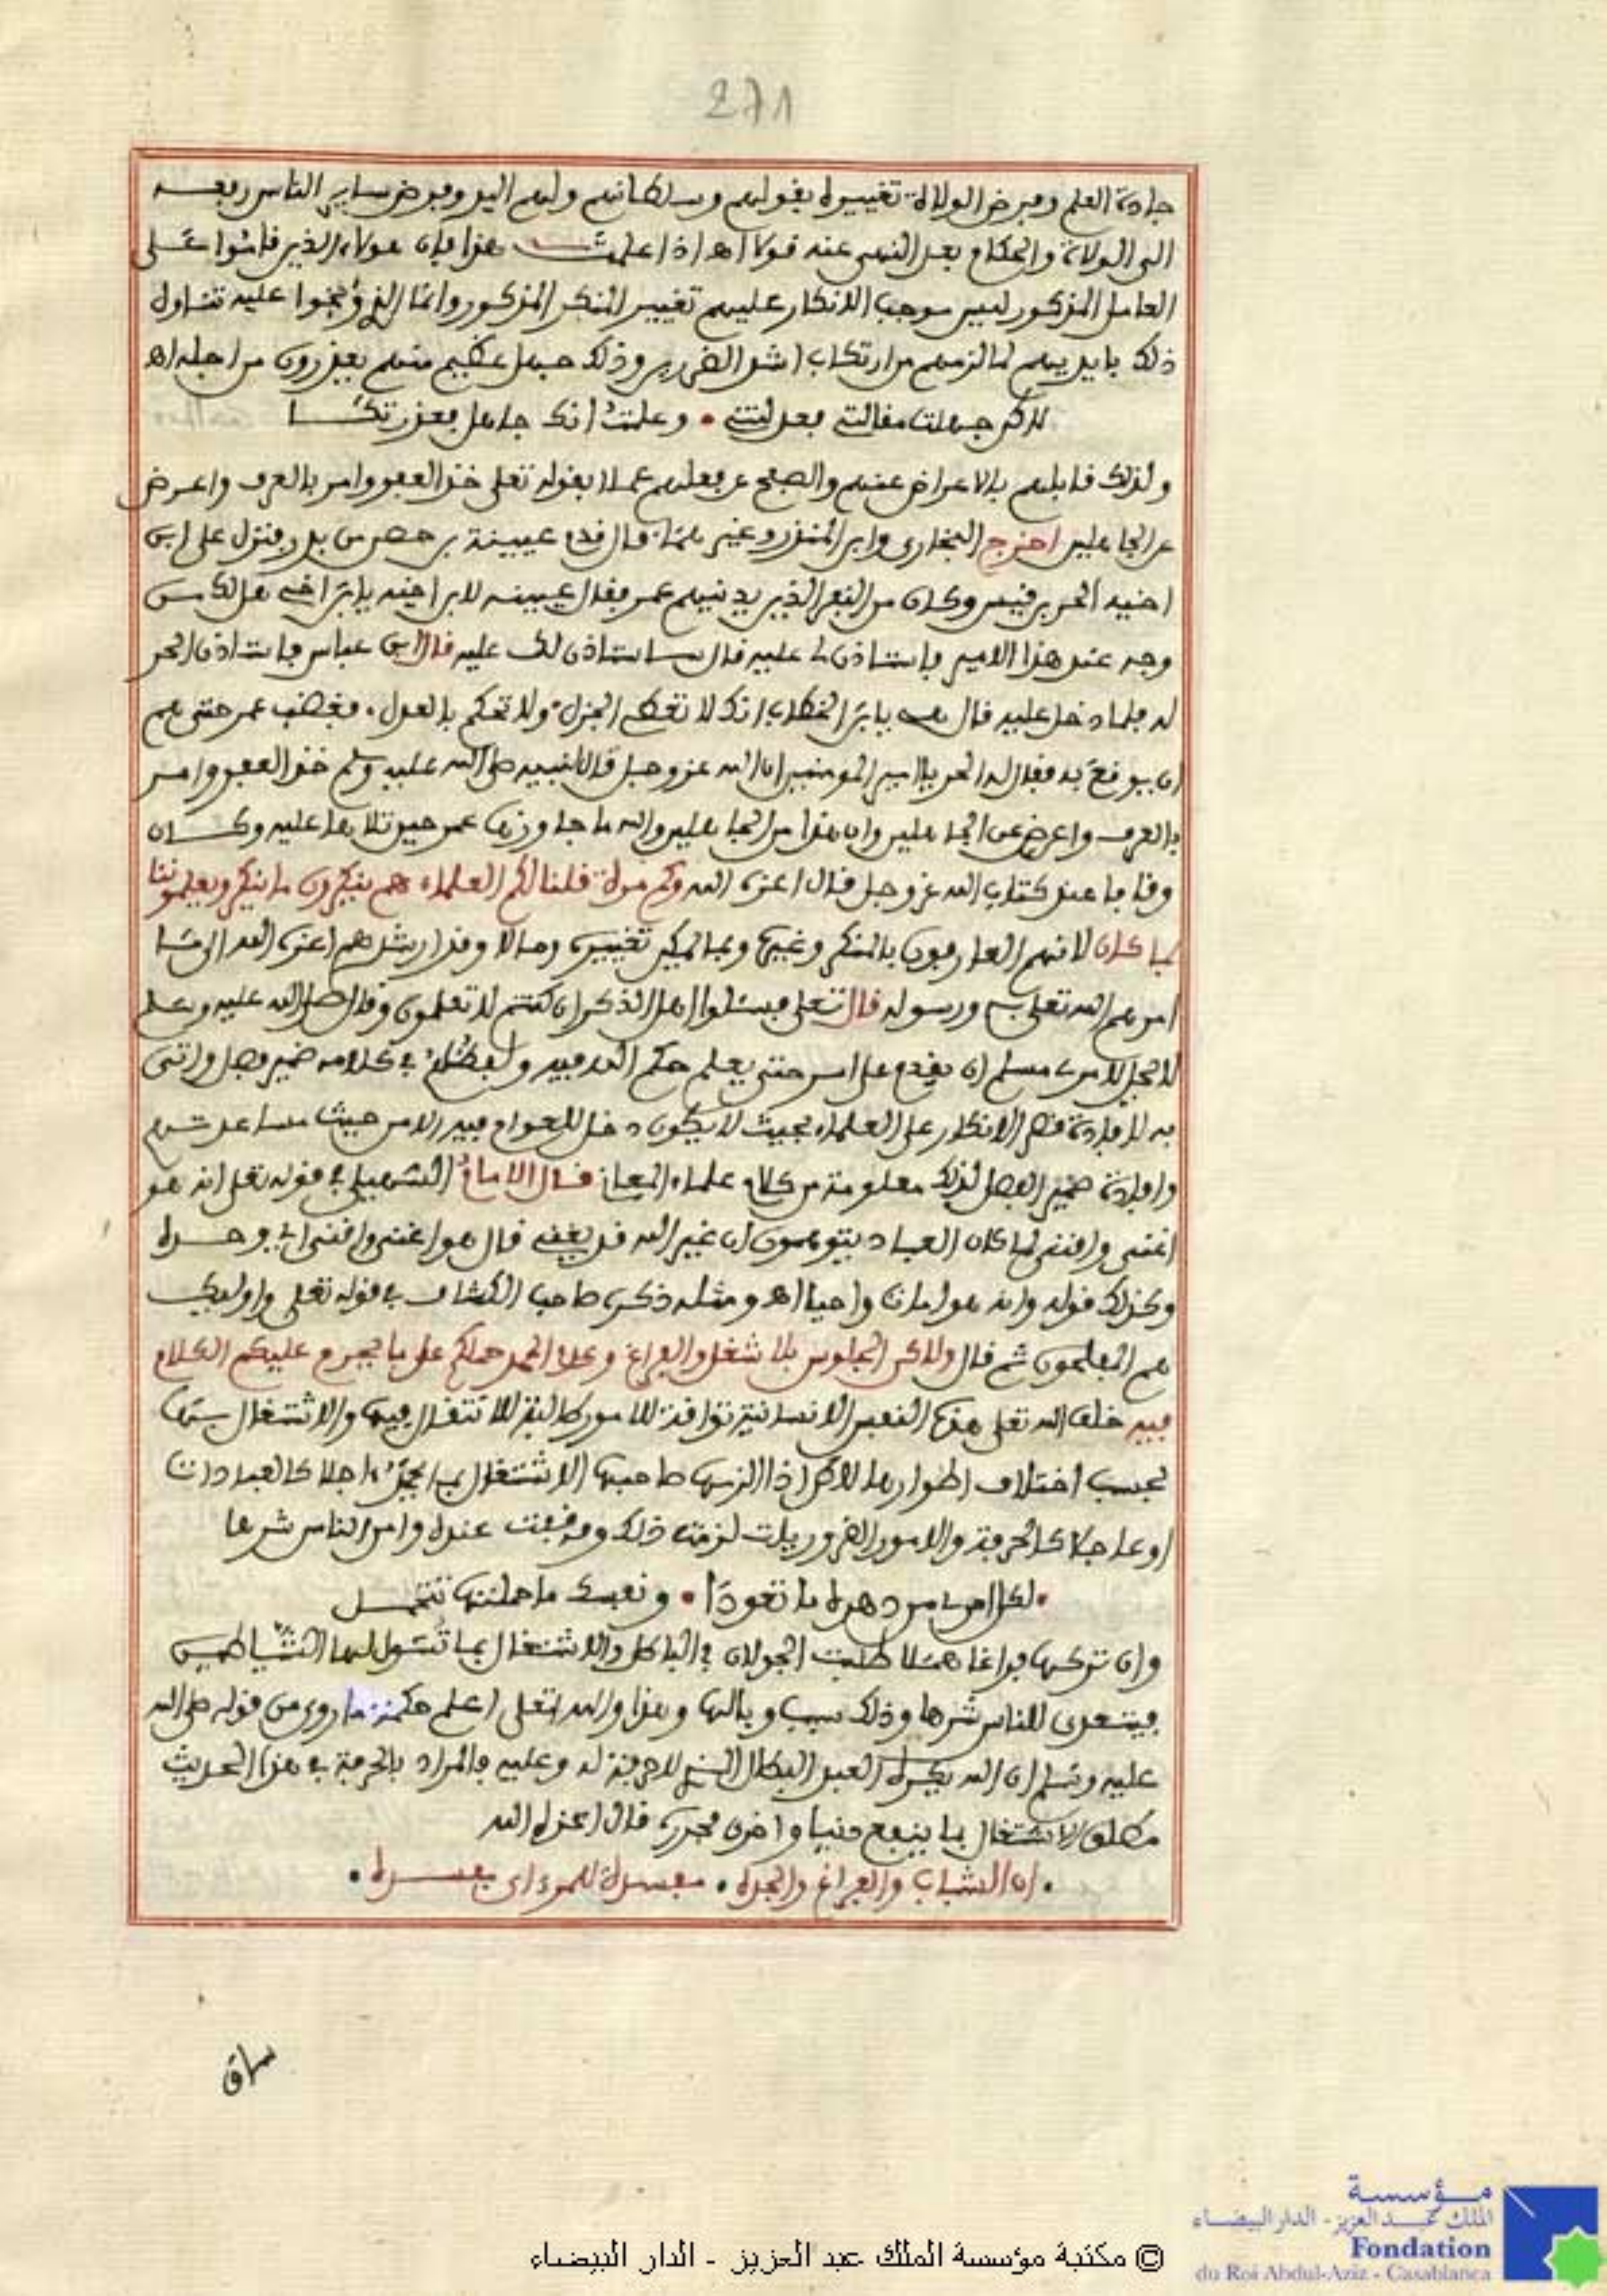 271
جادة العلم وفرض الولاة تغييره بقولهم وسلطانهم ولهم اليد وفرض ساير الناس رفعه
الى الولاة والحكام بعد النهى عنه قولا اه اذا علمت هذا فإن هولاء الذين قاموا على
العامل المذكور ليس موجب الانكار عليهم تغيير المنكر المذكور وانما الذى وبخوا عليه تناول
ذلك بايديهم لما لزمهم من ارتكاب اشد الضررين وذلك جهل عظيم منهم يعذرون من اجله اه
لاكن جهلت مقالتى فعذلتنى • وعلمت أنك جاهل فعذرتكا
ولذلك قابلهم بالاعراض عنهم والصفح عن فعلهم عملا بقوله تعلى خذ العفو وامر بالعرف واعرض
عن الجاهلين اخرج البخارى وابن المنذر وغيرهما قال قدم عيينة بن حصن بن بدر فنزل على ابن
اخيه الحر بن قيس وكان من النفر الذين يدنيهم عمر فقال عيينه لابن اخيه يابن اخى هل لك من
وجه عند هذا الامير فاستاذن لى عليه قال ساستاذن لك عليه قال ابن عباس فاستاذن الحر
له فلما دخل عليه قال هيه يابن الخطاب انك لا تعطى الجزل ولا تحكم بالعدل، فغضب عمر حتى هم
ان يوقع به فقال له الحر يا امير المومنين ان الله عز وجل قال لنبيه صلى الله عليه وسلم خذ العفو وامر
بالعرف واعرض عن الجاهلين وان هذا من الجاهلين والله ما جاوزها عمر حين تلاها عليه وكان
وقافا عند كتاب الله عز وجل قال اعزه الله وكم مرة قلنا لكم العلماء هم ينكرون ما ينكر ويعلموننا
بما كان لانهم العارفون بالمنكر وغيره وبما يمكن تغييره ومالا وقد ارشدهم اعزه الله الى ما
امرهم الله تعلى به ورسوله قال تعلى فسئلوا اهل الذكر ان كنتم لا تعلمون وقال صلى الله عليه وسلم
لا يحل لامرئ مسلم ان يقدم على امر حتى يعلم حكم الله فيه ولفظ هم فى كلامه ضمير فصل واتى
به لافادة قصر الانكار على العلماء بحيث لا يكون دخل للعوام فيه الا من حيث مساعدتهم
وافادة ضمير الفصل لذلك معلومة من كلام علماء المعانى قال الامام السهيلى فى قوله تعلى انه هو
اغنى واقنى لما كان العباد يتوهمون ان غير الله قد يغنى قال هو اغنى واقنى اى وحده
وكذلك قوله وانه هو امات واحيا اه ومثله ذكره صاحب الكشاف فى قوله تعلى واولئك
هم المفلحون ثم قال ولاكن الجلوس بلا شغل والفراغ وعدم الحمل حملكم على ما يحرم عليكم الكلام
فيه خلق الله تعلى هذه النفس الانسانية تواقة للامور طالبة للانتقال فيها والاشتغال بها
بحسب اختلاف اطوارها لاكن اذا الزمها صاحبها الاشتغال بما يجد آجلا كالعبادات
او عاجلا كالحرفة والامور الضروريات لزمت ذلك ووقفت عنده وامن الناس شرها
• لكل امرئ من دهره ما تعودا • ونفسك ما حملتها تتحمل
وان تركها فراغا هملا طلبت الجولان فى الباطل والاشتغال بما تسول لها الشياطين
فيتعدى للناس شرها وذلك سبب وبالها وهذا والله تعلى اعلم حكمة ما روى من قوله صلى الله
عليه وسلم ان الله يكره العبد البطال الذى لا حرفة له وعليه فالمراد بالحرفة فى هذا الحديث
مطلق الاشتغال بما ينفع دنيا واخرى فحرره قال اعزه الله
• ان الشباب والفراغ والجده • مفسدة للمرء اى مفسده •
ساق
© مكتبة مؤسسة الملك عبد العزيز - الدار البيضاء
مؤسسة
الملك عبد العزيز - الدار البيضاء
Fondation
du Roi Abdul-Aziz - Casablanca